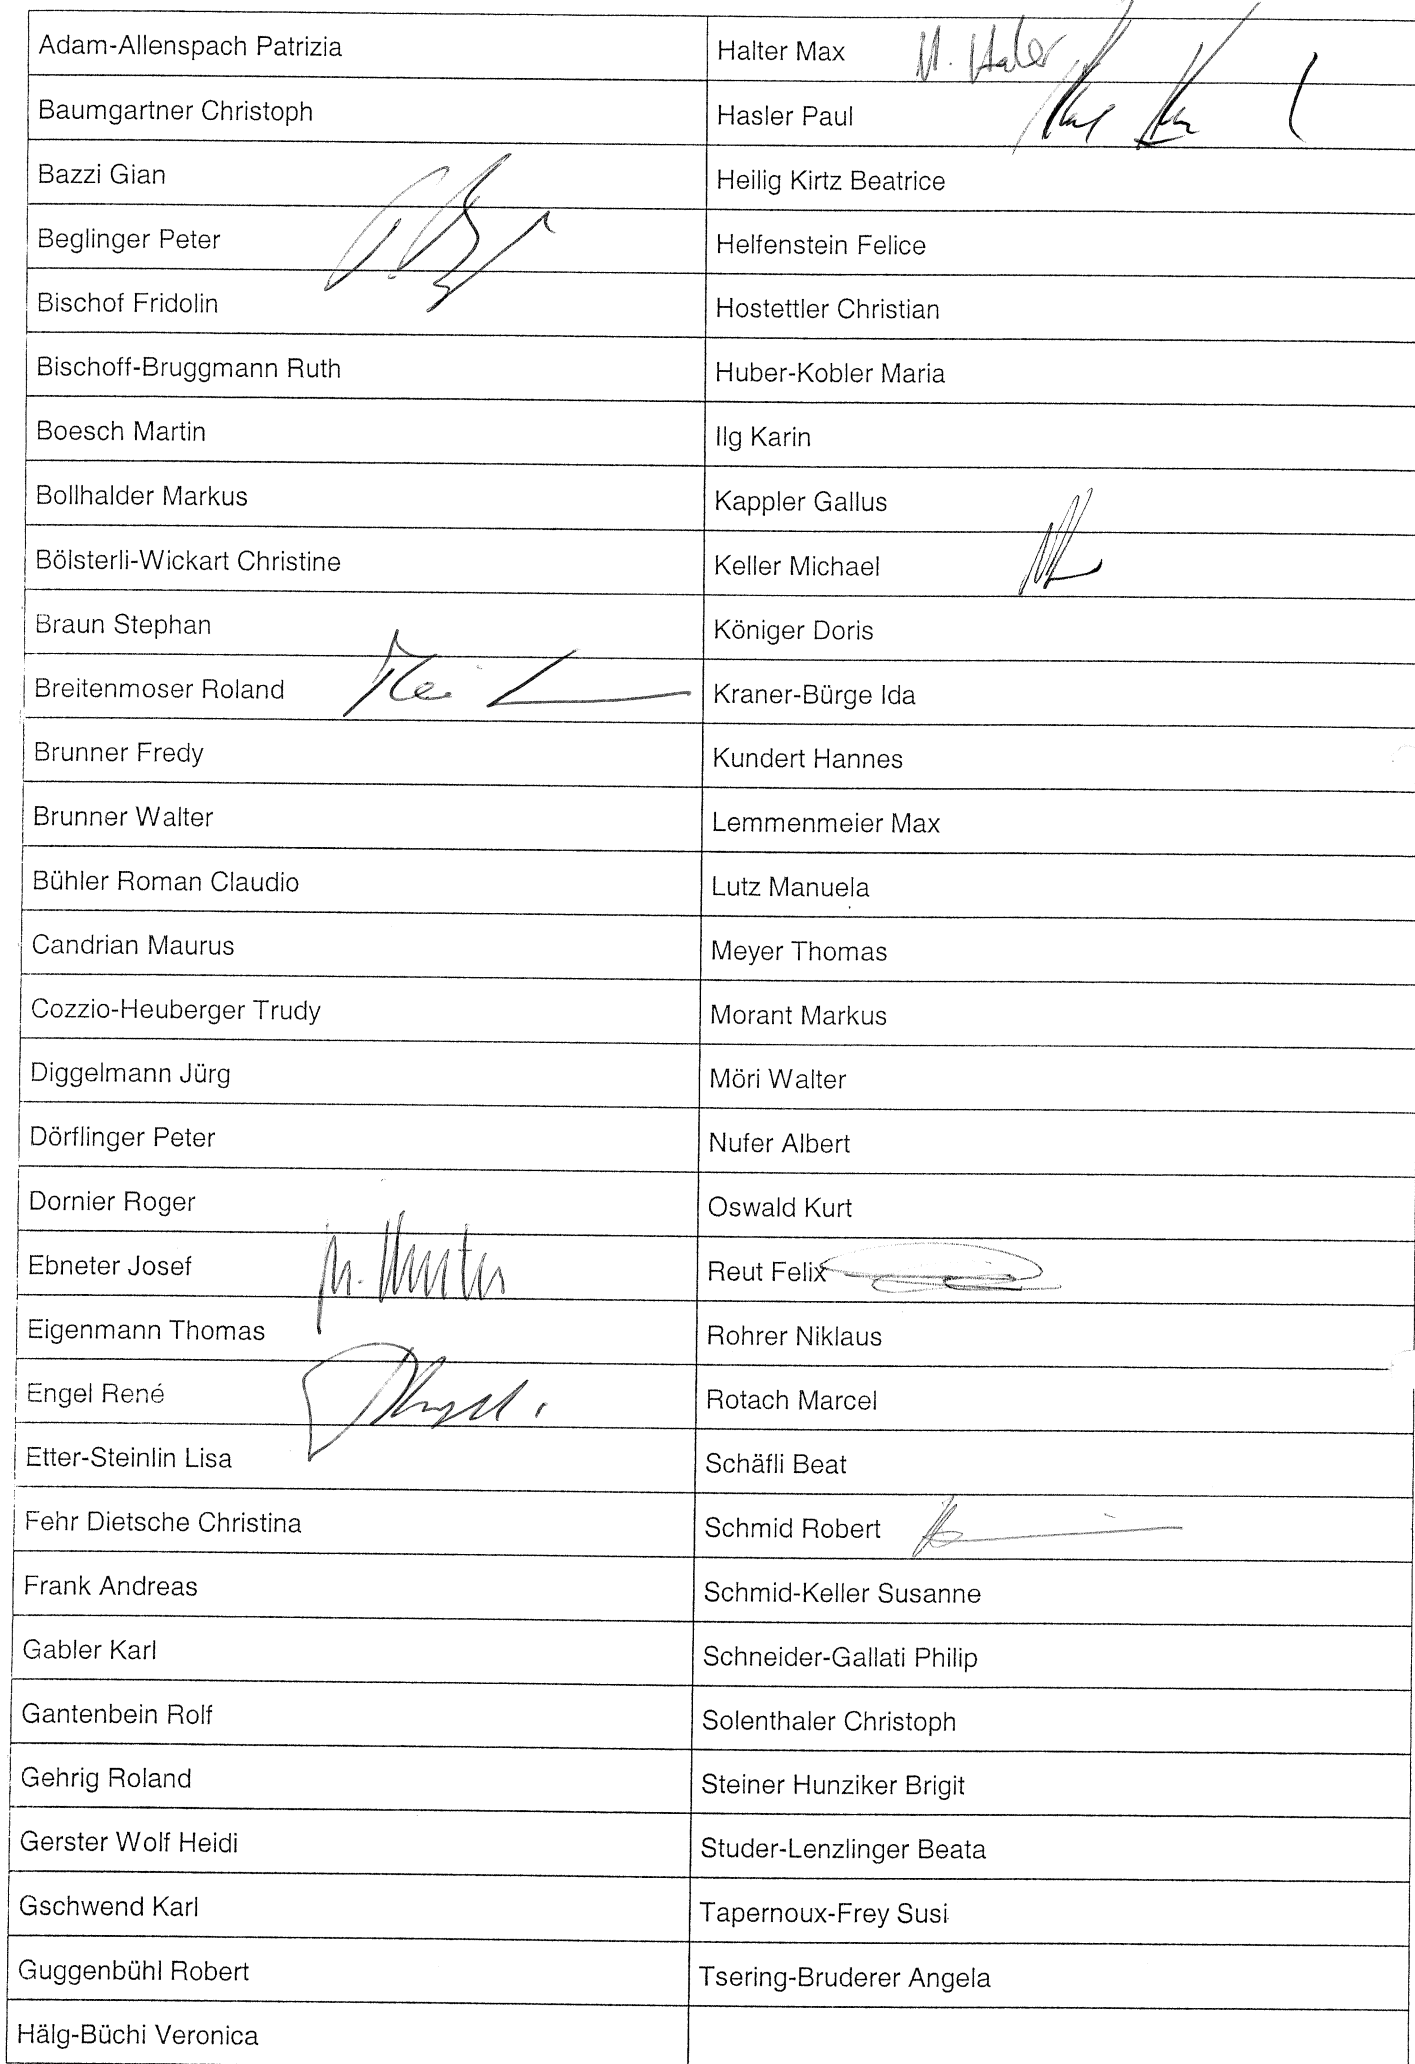 Adam-Allenspach Patrizia
Baumgartner Christoph
Bazzi Gian
Beglinger Peter
Bischof Fridolin
Bischoff-Bruggmann Ruth
Boesch Martin
Bollhalder Markus
Bölsterli-Wickart Christine
Braun Stephan
Breitenmoser Roland
Brunner Fredy
Brunner Walter
Bühler Roman Claudio
Candrian Maurus
Cozzio-Heuberger Trudy
Diggelmann Jürg
Dörflinger Peter
Dornier Roger
Ebneter Josef
Eigenmann Thomas
Engel René
Etter-Steinlin Lisa
Fehr Dietsche Christina
Frank Andreas
Gabler Karl
Gantenbein Rolf
Gehrig Roland
Gerster Wolf Heidi
Gschwend Karl
Guggenbühl Robert
Hälg-Büchi Veronica
Halter Max
Hasler Paul
Heilig Kirtz Beatrice
Helfenstein Felice
Hostettler Christian
Huber-Kobler Maria
Ilg Karin
Kappler Gallus
Keller Michael
Königer Doris
Kraner-Bürge Ida
Kundert Hannes
Lemmenmeier Max
Lutz Manuela
Meyer Thomas
Morant Markus
Möri Walter
Nufer Albert
Oswald Kurt
Reut Felix
Rohrer Niklaus
Rotach Marcel
Schäfli Beat
Schmid Robert
Schmid-Keller Susanne
Schneider-Gallati Philip
Solenthaler Christoph
Steiner Hunziker Brigit
Studer-Lenzlinger Beata
Tapernoux-Frey Susi
Tsering-Bruderer Angela